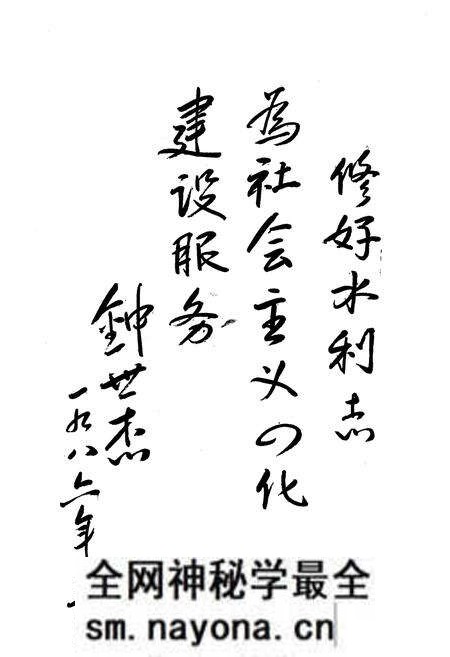 修好水利志
為社会主义四化
建设服务
鈡世杰
一九八六年
全网神秘学最全
sm.nayona.cn